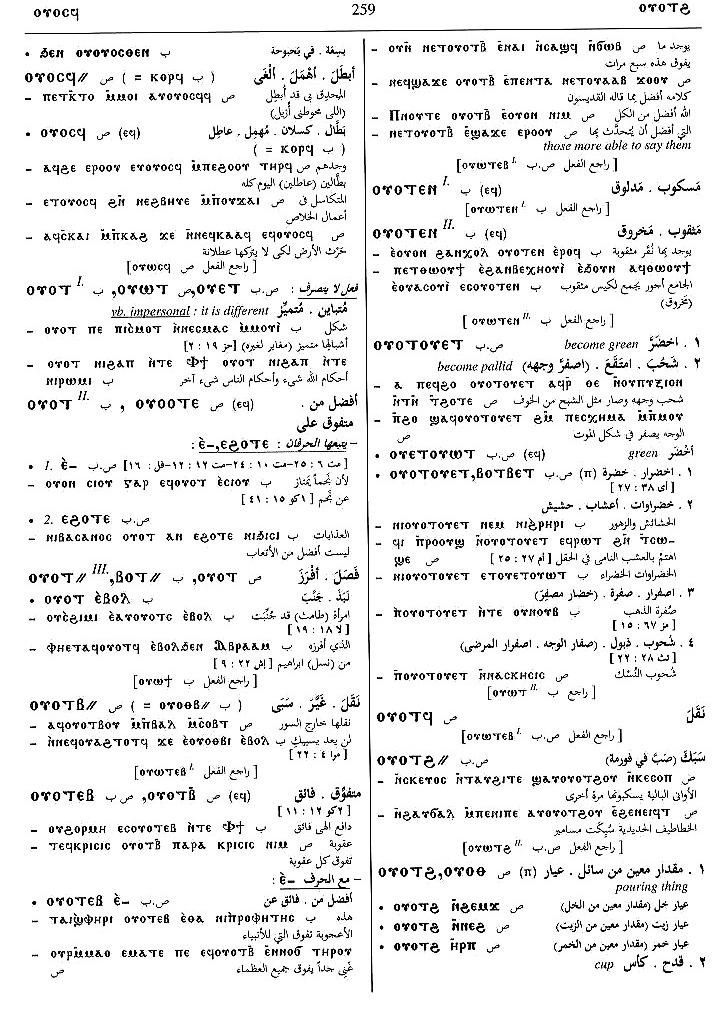 ⲟⲩⲟⲥϥ
259
ⲟⲩⲟⲧϩ
• ϧⲉⲛ ⲟⲩⲟⲩⲟⲥⲑⲉⲛ ب بسعة . في بحبوحة
ⲟⲩⲟⲥϥ// ( ب ⲕⲟⲣϥ = ) ص أبطَل . أهْمَل . ألْغَى
– ⲡⲉⲧⲕ̄ⲧⲟ ⲙ̄ⲙⲟⲓ ⲁⲩⲟⲩⲟⲥϥϥ ص المحدق بى قد أبطِل
(اللى محوطنى أزيل)
• ⲟⲩⲟⲥϥ ص (eq) بَطَّال . كسلان . مُهمِل . عاطِل
( ب ⲕⲟⲣϥ = )
– ⲁϥϩⲉ ⲉⲣⲟⲟⲩ ⲉⲩⲟⲩⲟⲥϥ ⲙ̄ⲡⲉϩⲟⲟⲩ ⲧⲏⲣϥ ص وجدهم
بطَّالين (عاطلين) اليوم كله
– ⲉⲧⲟⲩⲟⲥϥ ϩⲛ̄ ⲛⲉϩⲃⲏⲩⲉ ⲙ̄ⲡⲟⲩϫⲁⲓ ص المتكاسل فى
أعمال الخلاص
– ⲁϥⲥⲕⲁⲓ ⲙ̄ⲡⲕⲁϩ ϫⲉ ⲛ̄ⲛⲉϥⲕⲁⲁϥ ⲉϥⲟⲩⲟⲥϥ ص
حَرَث الأرض لكى لا يتركها عطلانة
[ راجع الفعل ص ⲟⲩⲱⲥϥ]
ⲟⲩⲟⲧ I. ب ,ⲟⲩⲱⲧ ص,ⲟⲩⲉⲧ ص.ب فعل لا يتصرف :
vb. impersonal : it is different مُتباين . مُتميِّز
– ⲟⲩⲟⲧ ⲡⲉ ⲡⲓⲥⲙⲟⲧ ⲛ̀ⲛⲉⲥⲙⲁⲥ ⲙ̀ⲙⲟⲩⲓ̀ ب شكل
أشبالها متميز (مغاير لغيره) [حز ١٩ : ٢]
– ⲟⲩⲟⲧ ⲛⲓϩⲁⲡ ⲛ̀ⲧⲉ Ⲫϯ ⲟⲩⲟⲧ ⲛⲓϩⲁⲡ ⲛ̀ⲧⲉ
ⲛⲓⲣⲱⲙⲓ ب أحكام الله شىء وأحكام الناس شىء آخر
ⲟⲩⲟⲧ II. ب , ⲟⲩⲟⲟⲧⲉ ص (eq) أفضل من .
متفوق على
– يتبعها الحرفان : ⲉ̀–,ⲉϩⲟⲧⲉ :
• 1. ⲉ̀– ص.ب [مت ٦ : ٢٥–مت ١٠ : ٢٤–مت ١٢ : ١٢–فل : ١٦]
– ⲟⲩⲟⲛ ⲥⲓⲟⲩ ⲅⲁⲣ ⲉϥⲟⲩⲟⲧ ⲉ̀ⲥⲓⲟⲩ ب لأن نجماً يمتاز
عن نجم [١كو ١٥ : ٤١]
• 2. ⲉϩⲟⲧⲉ ص.ب
– ⲛⲓⲃⲁⲥⲁⲛⲟⲥ ⲟⲩⲟⲧ ⲁⲛ ⲉϩⲟⲧⲉ ⲛⲓϧⲓⲥⲓ ب العذابات
ليست أفضل من الأتعاب
ⲟⲩⲟⲧ// III. ,ⲃⲟⲧ// ب ,ⲟⲩⲟⲧ ص فَصَل . أفْرَز
• ⲟⲩⲟⲧ ⲉ̀ⲃⲟⲗ ب نَبَذ . جَنَّب
– ⲟⲩⲥϩⲓⲙⲓ ⲉ̀ⲁⲩⲟⲩⲟⲧⲥ ⲉ̀ⲃⲟⲗ ب امرأة (طامث) قد جُنِّبت
[لا ١٨ : ١٩]
– ⲫⲏⲉⲧⲁϥⲟⲩⲟⲧϥ ⲉ̀ⲃⲟⲗϧⲉⲛ Ⲁⲃⲣⲁⲁⲙ ب الذي أفرزه
من (نسل) ابراهيم [إش ٢٢ : ٩]
[ راجع الفعل ب ⲟⲩⲱϯ]
ⲟⲩⲟⲧⲃ// ( ب ⲟⲩⲟⲑⲃ// = ) ص نَقَل . غَيَّر . سَبَى
– ⲁϥⲟⲩⲟⲧⲃⲟⲩ ⲙ̄ⲡⲃⲁⲗ ⲙ̄ⲥⲟⲃⲧ ص نقلها خارج السور
– ⲛ̀ⲛⲉϥⲟⲩⲁϩⲧⲟⲧϥ ϫⲉ ⲉⲟⲩⲟⲑⲃⲓ ⲉ̀ⲃⲟⲗ ب لن يعد يسبيك
[مرا ٤ : ٢٢]
[ راجع الفعل ص.ب ⲟⲩⲱⲧⲉⲃ I.]
ⲟⲩⲟⲧⲉⲃ ص.ب ,ⲟⲩⲟⲧⲃ̄ ص (eq) متفوّق . فائق
[٢كو ١٢ : ١١]
– ⲟⲩϩⲟⲣⲙⲏ ⲉⲥⲟⲩⲟⲧⲉⲃ ⲛ̀ⲧⲉ Ⲫϯ ب دافع الهى فائق
– ⲧⲉϥⲕⲣⲓⲥⲓⲥ ⲟⲩⲟⲧⲃ̄ ⲡⲁⲣⲁ ⲕⲣⲓⲥⲓⲥ ⲛⲓⲙ ص عقوبة
تفوق كل عقوبة
– مع الحرف ⲉ̀– :
• ⲟⲩⲟⲧⲉⲃ ⲉ̀– ص.ب أفضل من . فائق عن
– ⲧⲁⲓϣⲫⲏⲣⲓ ⲟⲩⲟⲧⲉⲃ ⲉ̀ⲑⲁ ⲛⲓⲡ̀ⲣⲟⲫⲏⲧⲏⲥ ب هذه
الأعجوبة تفوق التي للأنبياء
– ⲟⲩⲣⲙ̄ⲙⲁⲟ ⲉⲙⲁⲧⲉ ⲡⲉ ⲉϥⲟⲩⲟⲧⲃ̄ ⲉⲛ̄ⲛⲟϭ ⲧⲏⲣⲟⲩ
ص غنى جداً يفوق جميع العظماء
– ⲟⲩⲛ̄ ⲛⲉⲧⲟⲩⲟⲧⲃ̄ ⲉⲛⲁⲓ ⲛ̄ⲥⲁϣϥ ⲛ̄ⲕⲱⲃ ص يوجد ما
يفوق هذه سبع مرات
– ⲛⲉϥϣⲁϫⲉ ⲟⲩⲟⲧⲃ̄ ⲉⲡⲉⲛⲧⲁ ⲛⲉⲧⲟⲩⲁⲁⲃ ϫⲟⲟⲩ ص
كلامه أفضل بما قاله القديسون
– Ⲡⲛⲟⲩⲧⲉ ⲟⲩⲟⲧⲃ̄ ⲉⲟⲩⲟⲛ ⲛⲓⲙ ص الله أفضل من الكل
– ⲛⲉⲧⲟⲩⲟⲧⲃ̄ ⲉ̄ϣⲁϫⲉ ⲉⲣⲟⲟⲩ ص التي أفضل أن يُتحدَّث بها
those more able to say them
[ راجع الفعل ص.ب ⲟⲩⲱⲧⲉⲃ I.]
ⲟⲩⲟⲧⲉⲛ I. ب (eq) مَسكوب . مَدلوق
[ راجع الفعل ب ⲟⲩⲱⲧⲉⲛ I.]
ⲟⲩⲟⲧⲉⲛ II. ب (eq) مَثقوب . مَخروق
– ⲉ̀ⲟⲩⲟⲛ ϩⲁⲛϫⲟⲗ ⲟⲩⲟⲧⲉⲛ ⲉ̀ⲣⲟϥ ب يوجد بها نُقَر مثقوبة
– ⲡⲉⲧⲑⲱⲟⲩϯ ⲉ̀ϩⲁⲛⲃⲉⲭⲏⲟⲩⲓ̀ ⲉ̀ϧⲟⲩⲛ ⲁϥⲑⲱⲟⲩϯ
ⲉⲟⲩⲁⲥⲟⲩⲓ̀ ⲉⲥⲟⲩⲟⲧⲉⲛ ب الجامع أجور يجمع لكيس مثقوب
(مخروق)
[ راجع الفعل ب ⲟⲩⲱⲧⲉⲛ II.]
ⲟⲩⲟⲧⲟⲩⲉⲧ ص.ب become green ١ . اخضَرَّ
become pallid ٢ . شَحُب . امتَقَع . (اصفرّ وجهه)
– ⲁ ⲡⲉϥϩⲟ ⲟⲩⲟⲧⲟⲩⲉⲧ ⲁϥⲣ̄ ⲑⲉ ⲛ̄ⲟⲩⲡⲩⲝⲓⲟⲛ
ⲛ̄ⲧⲛ̄ ⲧϩⲟⲧⲉ ص شحب وجهه وصار مثل الشبح من الخوف
– ⲡϩⲟ ϣⲁϥⲟⲩⲟⲧⲟⲩⲉⲧ ϩⲙ̄ ⲡⲉⲥⲭⲏⲙⲁ ⲙ̄ⲡⲙⲟⲩ
ص الوجه يصفر في شكل الموت
• ⲟⲩⲉⲧⲟⲩⲱⲧ ص.ب (eq) green أخْضَر
• ⲟⲩⲟⲧⲟⲩⲉⲧ,ⲃⲟⲧⲃⲉⲧ ص.ب (π) ١ . اخضرار . خضرة
[أى ٣٨ : ٢٧]
٢ . خضراوات . أعشاب . حشيش
– ⲛⲓⲟⲩⲟⲧⲟⲩⲉⲧ ⲛⲉⲙ ⲛⲓϩⲣⲏⲣⲓ ب الحشائش والزهور
– ϥⲓ ⲡ̄ⲣⲟⲟⲩϣ ⲛ̄ⲟⲩⲟⲧⲟⲩⲉⲧ ⲉϥⲣⲱⲧ ϩⲛ̄ ⲧⲥⲱ–
ϣⲉ ص اهتم بالعشب النامى في الحقل [أم ٢٧ : ٢٥]
– ⲛⲓⲟⲩⲟⲧⲟⲩⲉⲧ ⲉⲧⲟⲩⲉⲧⲟⲩⲱⲧ ب الخضراوات الخضراء
٣ . اصفرار . صفرة . (خضار مصفِرّ)
– ⲡ̀ⲟⲩⲟⲧⲟⲩⲉⲧ ⲛ̀ⲧⲉ ⲟⲩⲛⲟⲩⲃ ب صُفرة الذهب
[مز ٦٧ : ١٥]
٤ . شحوب . ذبول . (صفار الوجه . اصفرار المرضى)
[تث ٢٨ : ٢٢]
– ⲡ̄ⲟⲩⲟⲧⲟⲩⲉⲧ ⲛ̄ⲛⲁⲥⲕⲏⲥⲓⲥ ص شحوب النُسك
[ راجع ب ⲟⲩⲱⲧ II.]
ⲟⲩⲟⲧϥ ص نَقَل
[ راجع الفعل ص.ب ⲟⲩⲱⲧⲉⲃ I.]
ⲟⲩⲟⲧϩ// ص.ب سَبَك (صَبّ في فورمة)
– ⲛ̄ⲥⲕⲉⲩⲟⲥ ⲛ̄ⲧⲁⲩϩⲓⲧⲉ ϣⲁⲩⲟⲩⲟⲧϩⲟⲩ ⲛ̄ⲕⲉⲥⲟⲡ ص
الأوانى البالية يسكبونها مرة أخرى
– ⲛ̄ϩⲁⲩϭⲁⲗ ⲙ̄ⲡⲉⲛⲓⲡⲉ ⲁⲩⲟⲩⲟⲧϩⲟⲩ ⲉϩⲉⲛⲉⲓϥⲧ ص
الخطاطيف الحديدية سُبِكت مسامير
[ راجع الفعل ص.ب ⲟⲩⲱⲧϩ II.]
ⲟⲩⲟⲧϩ,ⲟⲩⲟⲑ ص (π) ١ . مقدار معين من سائل . عيار
pouring thing
• ⲟⲩⲟⲧϩ ⲛ̄ϩⲉⲙϫ ص عيار خل (مقدار معين من الخل)
• ⲟⲩⲟⲧϩ ⲛ̄ⲛⲉϩ ص عيار زيت (مقدار معين من الزيت)
• ⲟⲩⲟⲧϩ ⲛ̄ⲏⲣⲡ ص عيار خمر (مقدار معين من الخمر)
cup ٢ . قدح . كأس